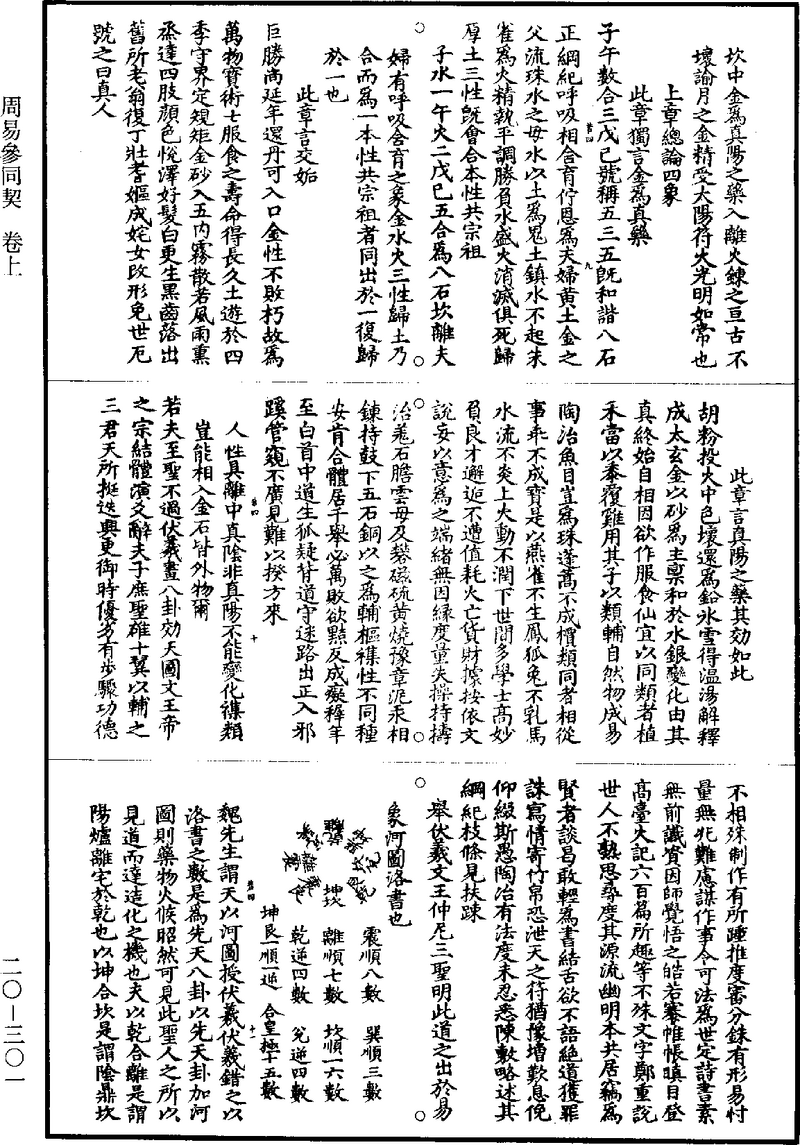 周易參同契　卷上
二〇—三〇一
坎中金爲真陽之藥入離火鍊之亘古不
壞諭月之金精受太陽符火光明如常也
上章總論四象
此章獨言金爲真藥
子午數合三戊己號稱五三五既和諧八石
正綱紀呼吸相含育佇思爲夫婦黄土金之
父流珠水之母水以土爲鬼土鎮水不起朱
雀爲火精執平調勝負水盛火消滅俱死歸
厚土三性既會合本性共宗祖
子水一午火二戊己五合爲八石坎離夫
婦有呼吸含育之象金水火三性歸土乃
合而爲一本性共宗祖者同出於一復歸
於一也
此章言交姤
巨勝尚延年還丹可入口金性不敗朽故爲
萬物寳術士服食之壽命得長久土遊於四
季守界定規矩金砂入五内霧散若風雨熏
烝達四肢顔色悅澤好髮白更生黑齒落出
舊所老翁復丁壯耆嫗成姹女改形免世厄
號之曰真人
此章言真陽之藥其効如此
胡粉投火中色壞還爲鉛氷雪得温湯解釋
成太玄金以砂爲主稟和於水銀變化由其
真終始自相因欲作服食仙宜以同類者植
禾當以黍覆雞用其子以類輔自然物成易
陶冶魚目豈爲珠蓬蒿不成檟類同者相從
事乖不成寳是以燕雀不生鳳狐兔不乳馬
水流不炎上火動不潤下世間多學士高妙
負良才邂逅不遭值耗火亡貨財據按依文
說妄以意爲之端緒無因緣度量失操持擣
治羗石膽雲母及礬磁硫黄燒豫章泥汞相
鍊持鼓下五石銅以之爲輔樞襍性不同種
安肯合體居千舉必萬敗欲黠反成癡穉年
至白首中道生狐疑背道守迷路出正入邪
蹊管窺不廣見難以揆方來
人性具離中真陰非真陽不能變化襍類
豈能相入金石皆外物爾
若夫至聖不過伏羲畫八卦効天圖文王帝
之宗結體演爻辭夫子庶聖雄十翼以輔之
三君天所挺迭興更御時優劣有步驟功德
不相殊制作有所踵推度審分銖有形易忖
量無兆難慮謀作事令可法爲世定詩書素
無前識資因師覺悟之皓若褰帷帳瞋目登
高臺火記六百篇所趣等不殊文字鄭重說
世人不熟思尋度其源流幽明本共居竊爲
賢者談曷敢輕爲書結舌欲不語絶道獲罪
誅寫情寄竹帛恐泄天之符猶豫增歎息俛
仰綴斯愚陶冶有法度未忍悉陳敷略述其
綱紀枝條見扶踈
舉伏羲文王仲尼三聖明此道之出於易
象河圖洛書也
坤坎
震順八數　巽順三數
離順七數　坎順一六數
乾逆四數　兊逆四數
坤艮一順一逆　合皇極十五數
魏先生謂天以河圖授伏羲伏羲錯之以
洛書之數是為先天八卦以先天卦加河
圖則藥物火候昭然可見此聖人之所以
見道而達造化之機也夫以乾合離是謂
陽爐離宅於乾也以坤合坎是謂陰鼎坎